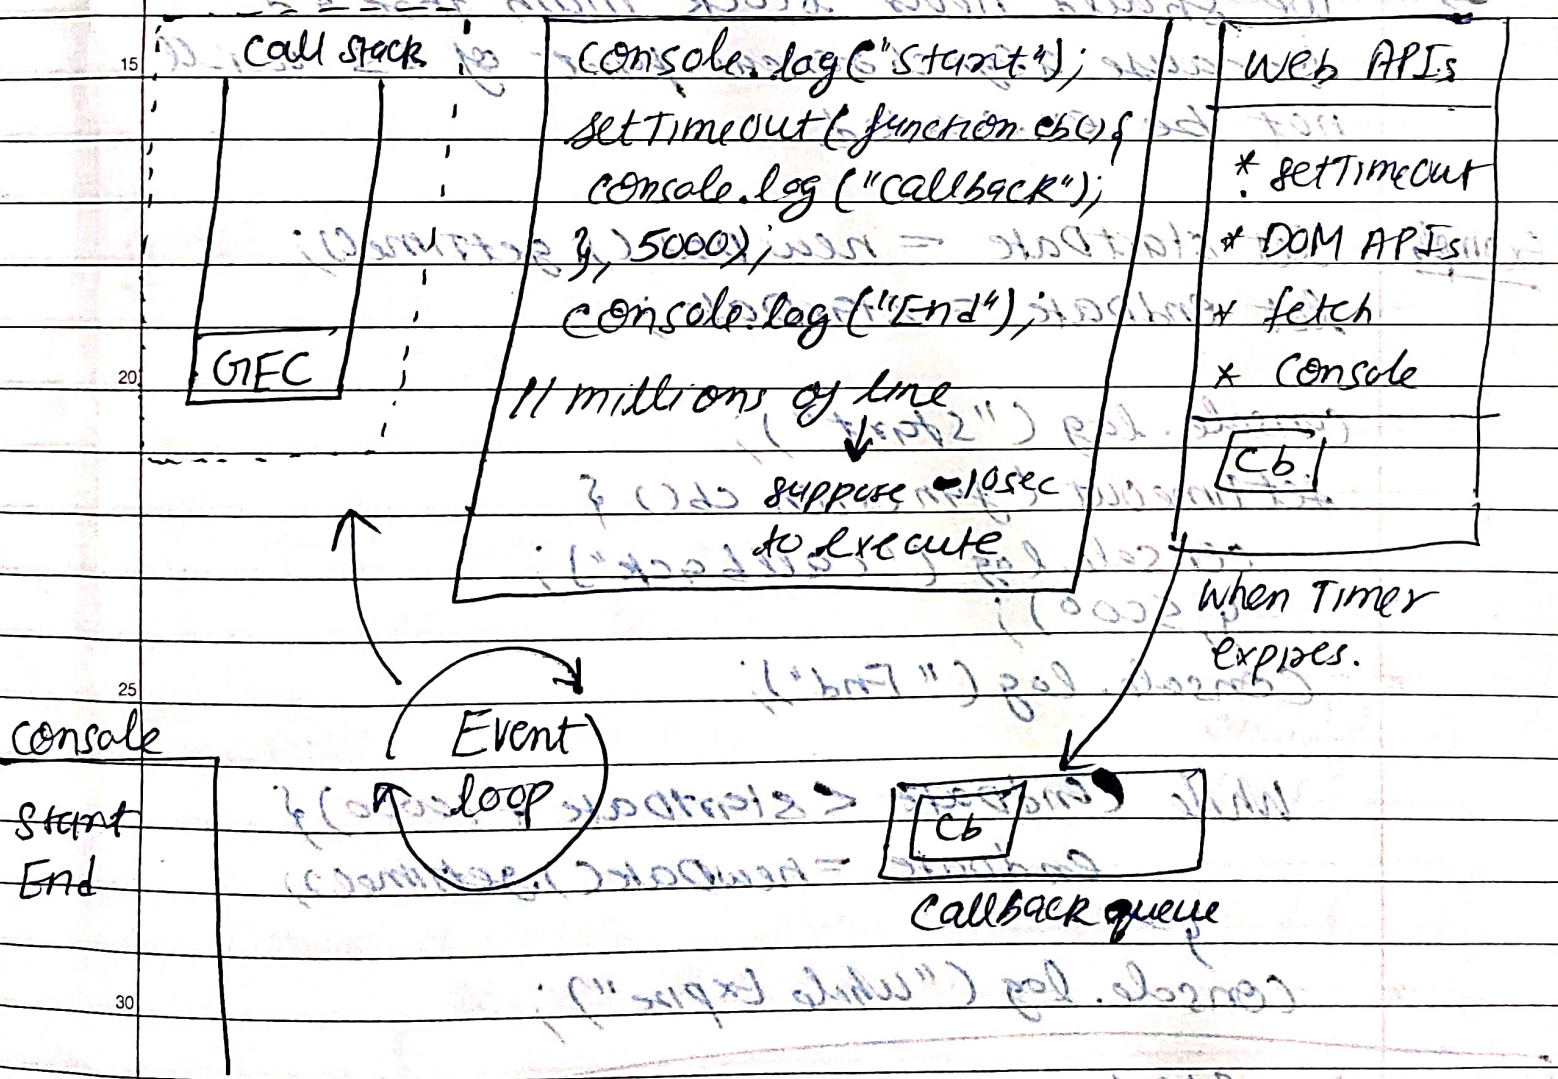 Call stack
GEC
console.log("Start");
setTimeout(function cb(){
console.log("Callback");
}, 5000);
console.log("End");
// millions of line
suppose - 10sec
to execute
Web APIs
* setTimeout
* DOM APIs
* fetch
* console
Cb
when Timer
expires.
Event
loop
Cb
Callback queue
console
Start
End
15
20
25
30